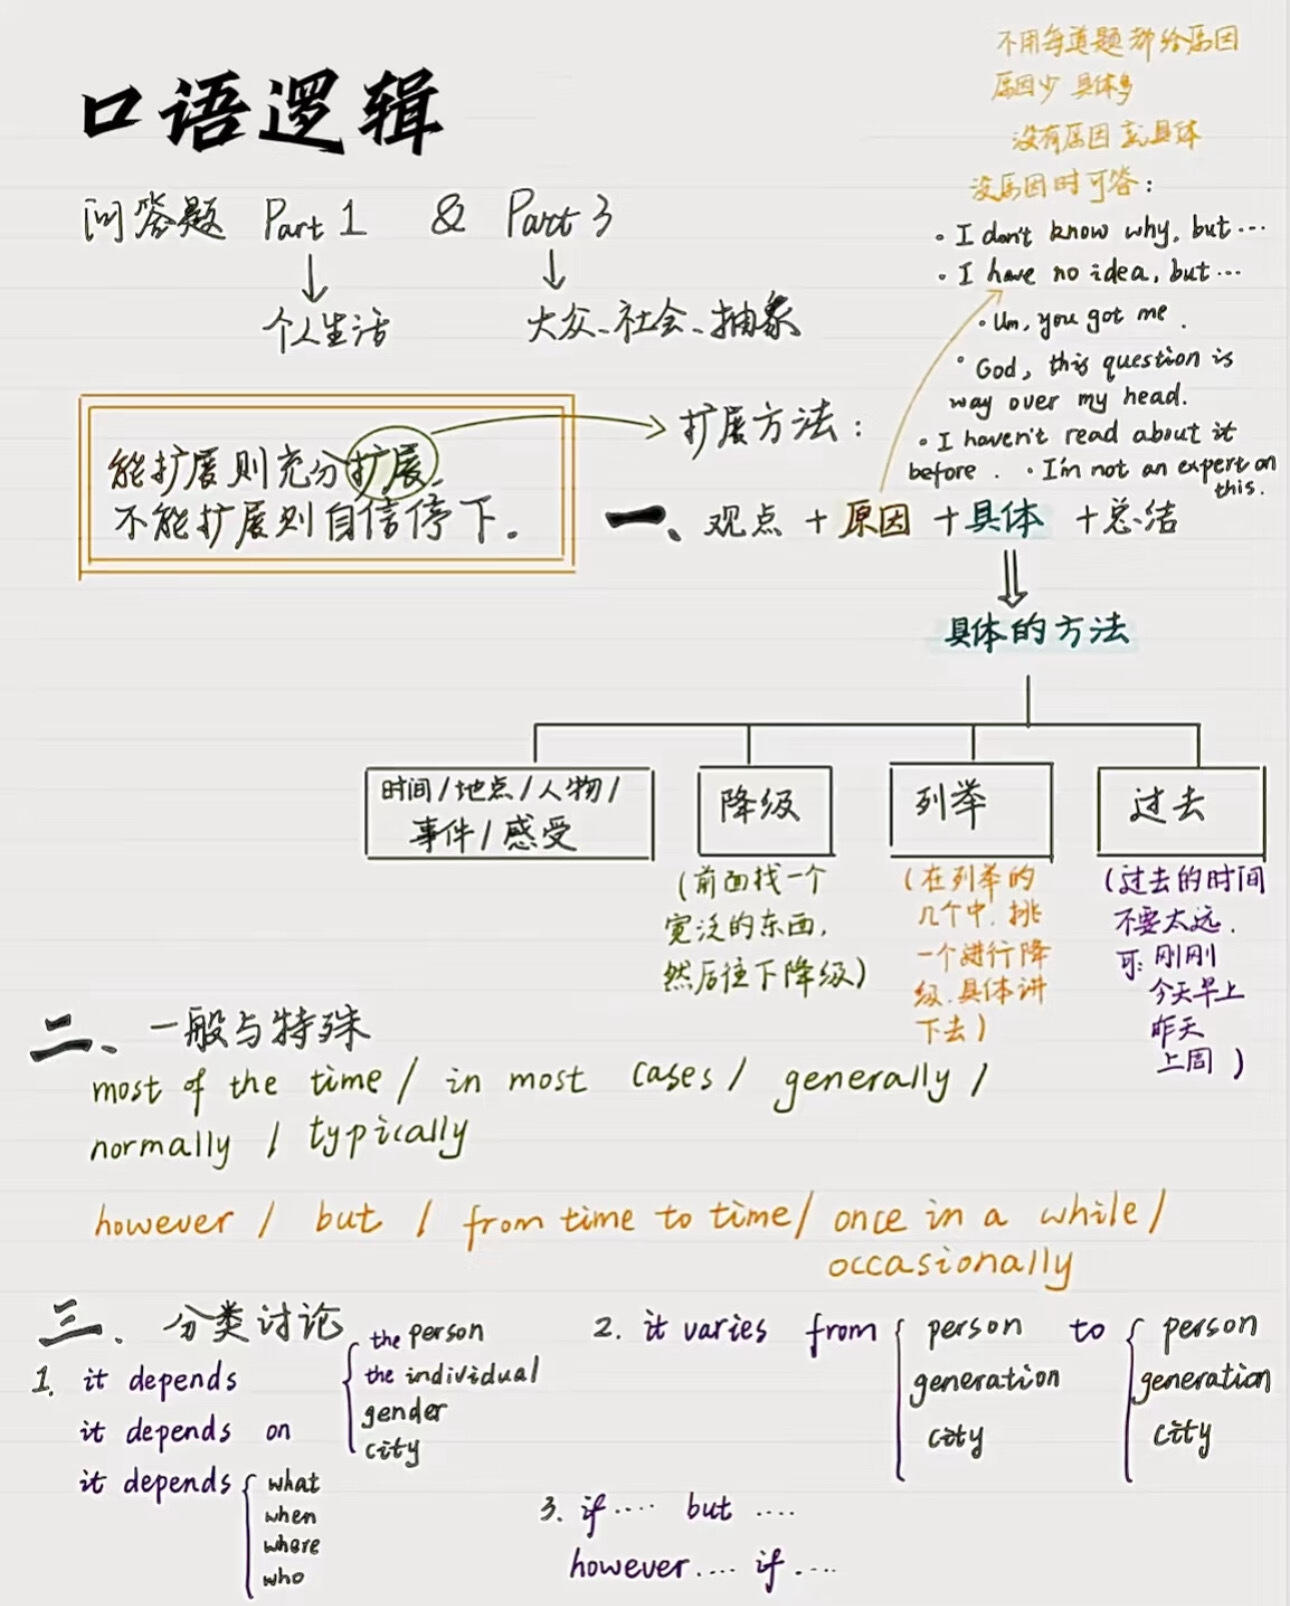 口语逻辑
问答题 Part 1 & Part 3
个人生活
大众、社会、抽象
不用每道题都给原因
原因少 具体多
没有原因 就具体
没原因时可答:
• I don't know why, but ...
• I have no idea, but ...
• Um, you got me.
• God, this question is
way over my head.
• I haven't read about it
before. • I'm not an expert on
this.
能扩展则充分扩展,
不能扩展则自信停下。
扩展方法:
一、观点 + 原因 + 具体 + 总结
具体的方法
时间/地点/人物/
事件/感受
降级
(前面找一个
宽泛的东西,
然后往下降级)
列举
(在列举的
几个中,挑
一个进行降
级,具体讲
下去)
过去
(过去的时间
不要太远.
可: 刚刚
今天早上
昨天
上周)
二、一般与特殊
most of the time / in most cases / generally /
normally / typically
however / but / from time to time / once in a while /
occasionally
三、分类讨论
1. it depends
it depends on
the person
the individual
gender
city
it depends
what
when
where
who
2. it varies from
person
generation
city
to
person
generation
city
3. if .... but ....
however .... if ....